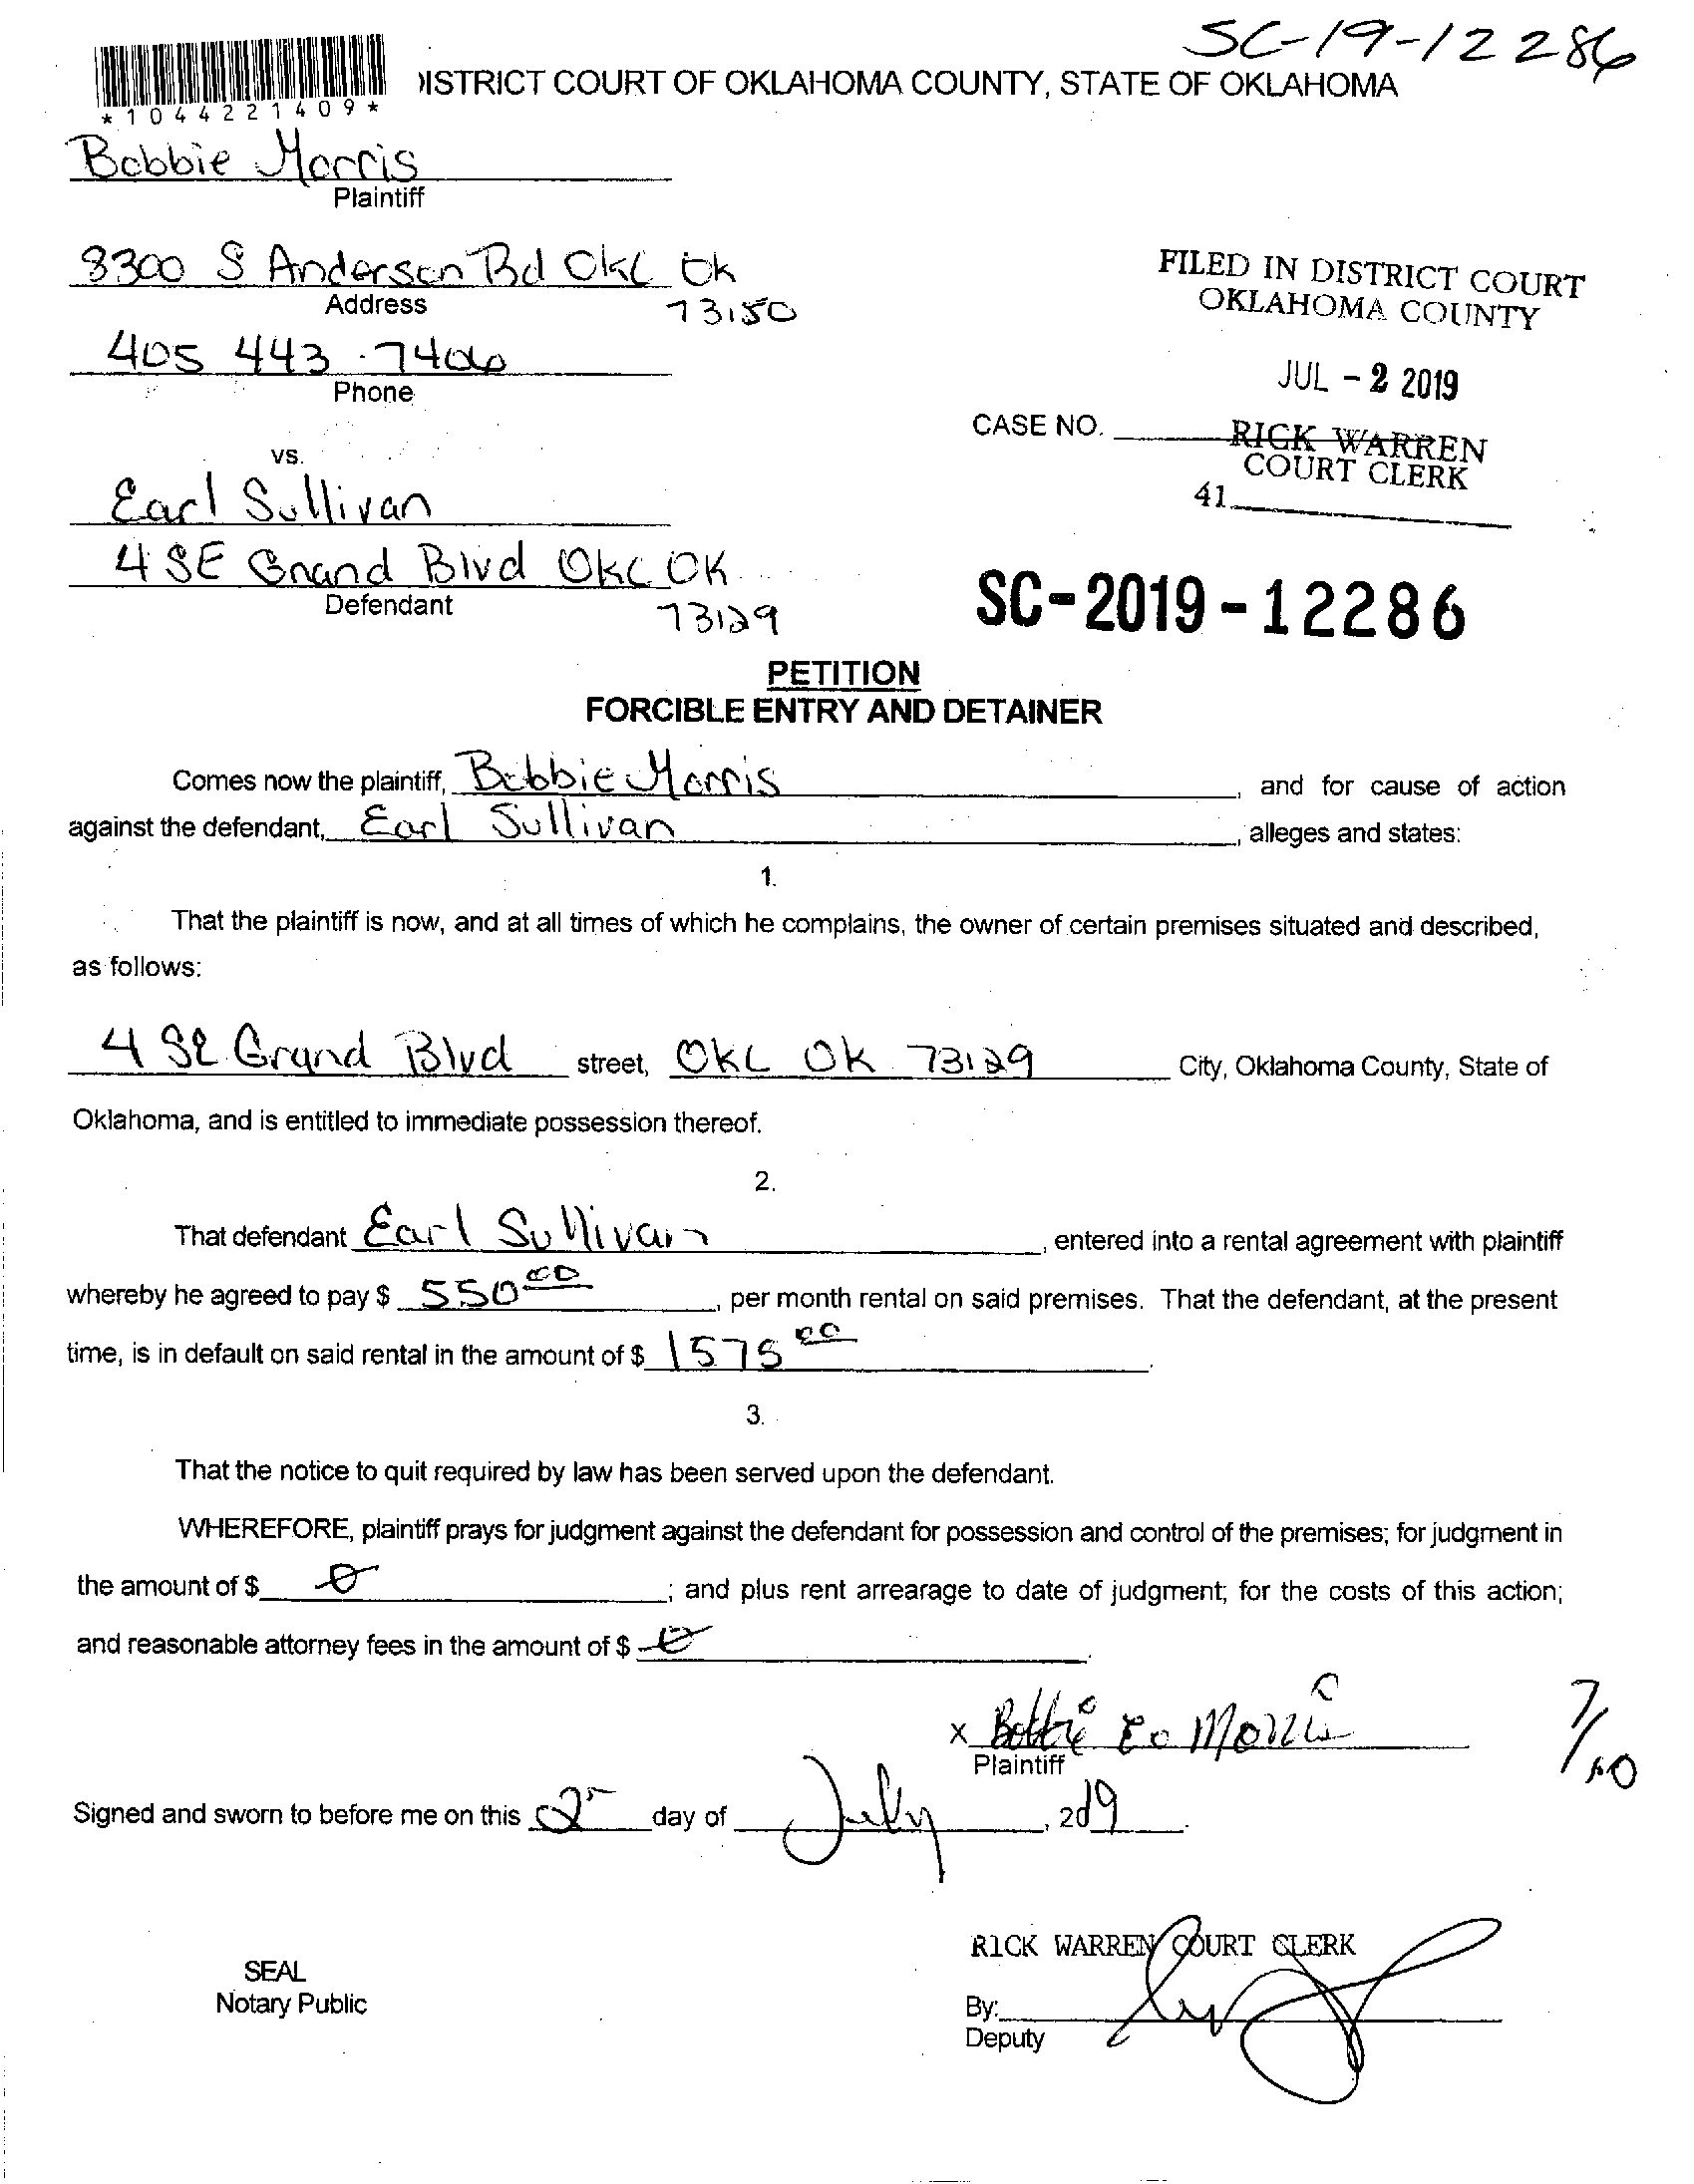 SC-19-12286
DISTRICT COURT OF OKLAHOMA COUNTY, STATE OF OKLAHOMA
*1044221409*
Bobbie Morris
Plaintiff
8300 S Anderson Rd OKC OK
Address
73150
405 443-7406
Phone
FILED IN DISTRICT COURT
OKLAHOMA COUNTY
JUL - 2 2019
CASE NO.
RICK WARREN
COURT CLERK
41
vs.
Earl Sullivan
4 SE Grand Blvd OKC OK
Defendant
73129
SC-2019-12286
PETITION
FORCIBLE ENTRY AND DETAINER
Comes now the plaintiff, Bobbie Morris, and for cause of action
against the defendant, Earl Sullivan, alleges and states:
1.
That the plaintiff is now, and at all times of which he complains, the owner of certain premises situated and described,
as follows:
4 SE Grand Blvd street, OKC OK 73129 City, Oklahoma County, State of
Oklahoma, and is entitled to immediate possession thereof.
2.
That defendant Earl Sullivan, entered into a rental agreement with plaintiff
whereby he agreed to pay $ 550 00, per month rental on said premises. That the defendant, at the present
time, is in default on said rental in the amount of $ 1575 00.
3.
That the notice to quit required by law has been served upon the defendant.
WHEREFORE, plaintiff prays for judgment against the defendant for possession and control of the premises; for judgment in
the amount of $ 0; and plus rent arrearage to date of judgment; for the costs of this action;
and reasonable attorney fees in the amount of $ 0.
x Bobbie Morris
Plaintiff
7/10
Signed and sworn to before me on this 2 day of July, 2019.
RICK WARREN COURT CLERK
SEAL
Notary Public
By:
Deputy